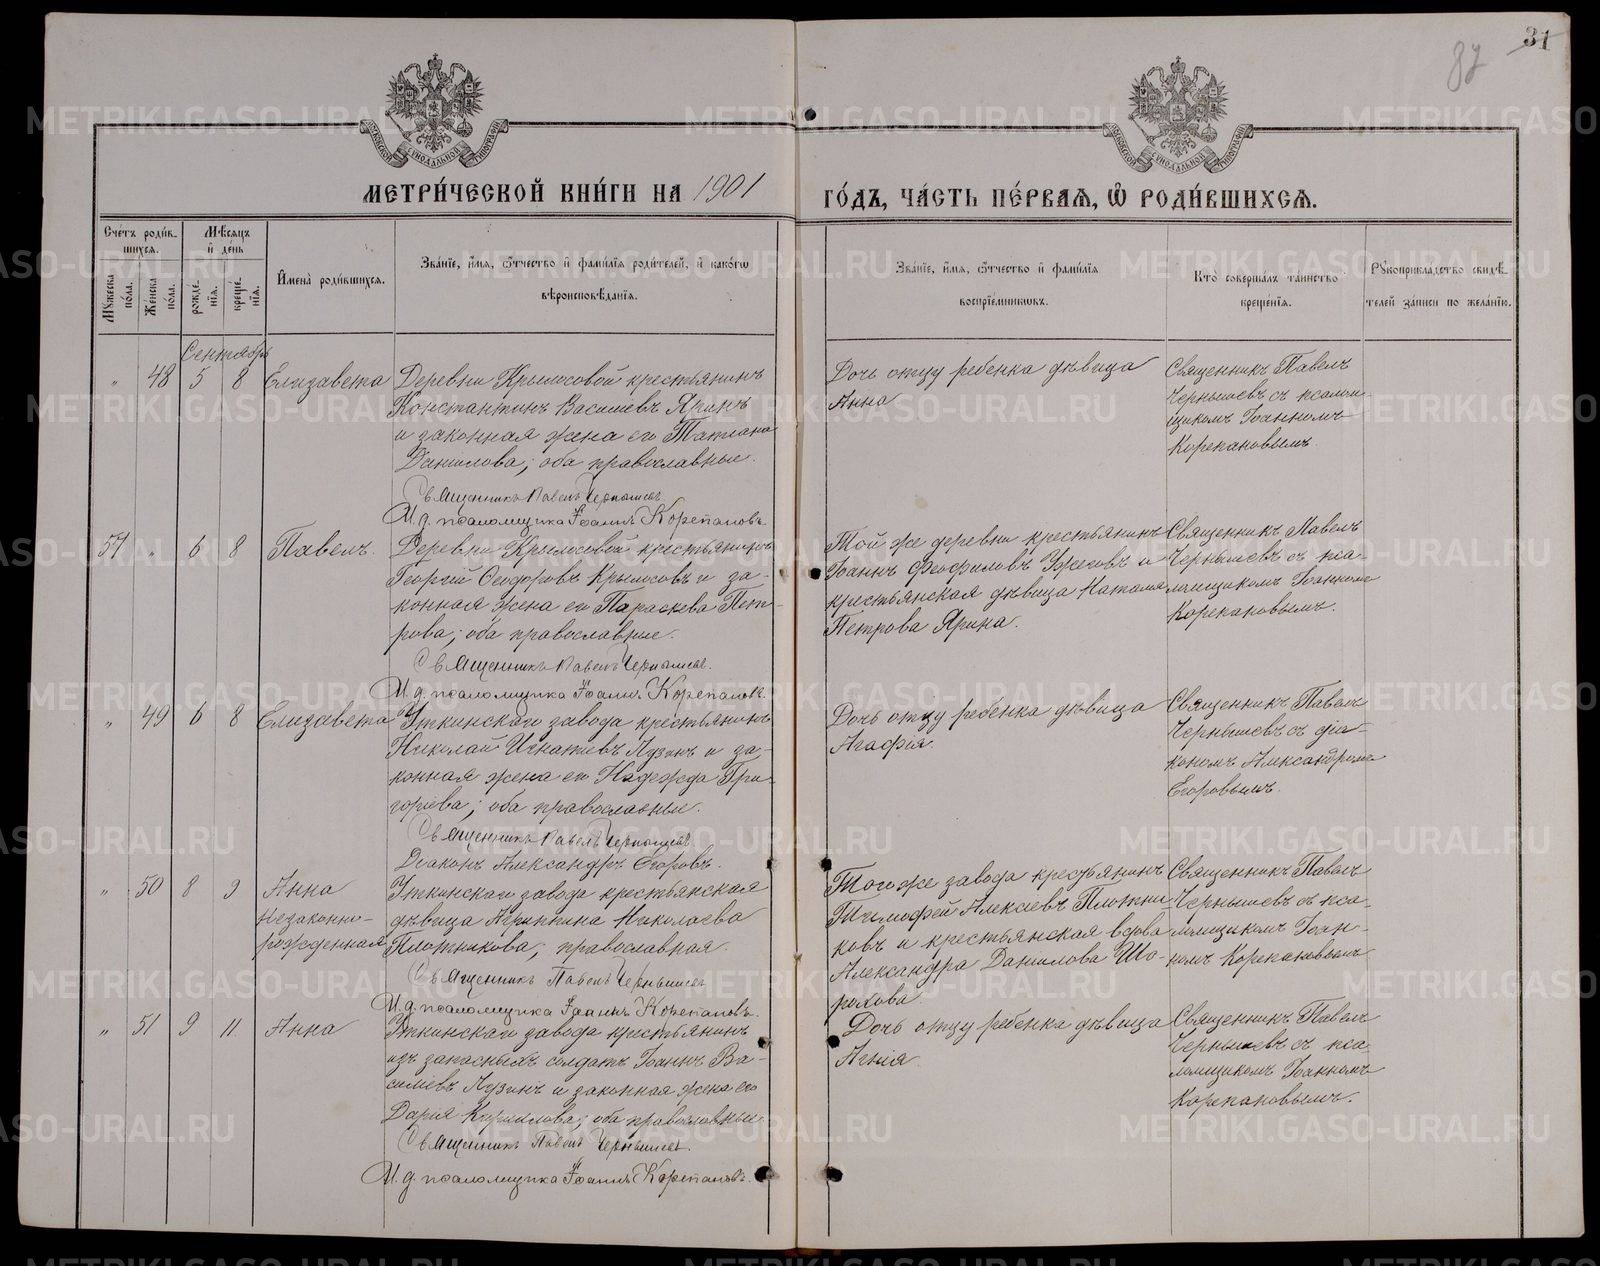 87 31
МЕТРИ́ЧЕСКОЙ КНИ́ГИ НА 1901 ГО́ДЪ, ЧА́СТЬ ПЕ́РВАѦ, Ѽ РОДИ́ВШИХСѦ.
Сче́тъ роди́в-
шихсѧ.
Мѣ́сѧцъ
и҆ де́нь
Мꙋ́жеска по́ла.
Же́нска по́ла.
рожде́-
нїѧ.
креще́-
нїѧ.
И҆мена̀ роди́вшихсѧ.
Зва́нїе, и҆́мѧ, ѻ҆́тчество и҆ фами́лїѧ роди́телей, и҆ како́гѡ
вѣроисповѣ́данїѧ.
Зва́нїе, и҆́мѧ, ѻ҆́тчество и҆ фами́лїѧ
воспрїе́мникѡвъ.
Кто̀ соверша́лъ та́инство
креще́нїѧ.
Рꙋкоприкла́дство свидѣ́-
телей за́писи по жела́нїю.
Сентябрь
„ 48 5 8 Елизавета
Деревни Крылосовой крестьянинъ
Константинъ Васильевъ Яринъ
и законная жена его Татиана
Данилова; оба православные.
Священникъ Павелъ Чернышевъ
И. д. псаломщика Іоаннъ Корепановъ.
Дочь отцу ребенка дѣвица
Анна
Священникъ Павелъ
Чернышевъ съ псалом-
щикомъ Іоанномъ
Корепановымъ.
57 „ 6 8 Павелъ.
Деревни Крылосовой крестьянинъ
Георгій Ѳеодоровъ Крылосовъ и за-
конная жена его Параскева Пет-
рова; оба православные.
Священникъ Павелъ Чернышевъ.
И. д. псаломщика Іоаннъ Корепановъ.
Той же деревни крестьянинъ
Іоаннъ Ѳеофиловъ и
крестьянская дѣвица Наталия
Петрова Ярина.
Священникъ Павелъ
Чернышевъ съ пса-
ломщикомъ Іоанномъ
Корепановымъ.
„ 49 6 8 Елизавета
Уткинскаго завода крестьянинъ
Николай Игнатіевъ Пузинъ и за-
конная жена его Надежда Гри-
горіева; оба православные.
Священникъ Павелъ Чернышевъ
Діаконъ Александръ Егоровъ.
Дочь отцу ребенка дѣвица
Агафія.
Священникъ Павелъ
Чернышевъ съ діа-
кономъ Александромъ
Егоровымъ.
„ 50 8 9 Анна
незаконно-
рожденная
Уткинскаго завода крестьянская
дѣвица Агриппина Николаева
Плотникова, православная.
Священникъ Павелъ Чернышевъ
И. д. псаломщика Іоаннъ Корепановъ.
Того же завода крестьянинъ
Тимофей Алексіевъ Плотни-
ковъ и крестьянская вдова
Александра Данилова Шо-
рохова.
Священникъ Павелъ
Чернышевъ съ пса-
ломщикомъ Іоан-
номъ Корепановымъ
„ 51 9 11 Анна
Уткинскаго завода крестьянинъ
изъ запасныхъ солдатъ Іоаннъ Ва-
силіевъ Пузинъ и законная жена его
Дарія Кириллова; оба православные
Священникъ Павелъ Чернышевъ.
И. д. псаломщика Іоаннъ Корепановъ.
Дочь отцу ребенка дѣвица
Агнія.
Священникъ Павелъ
Чернышевъ съ пса-
ломщикомъ Іоанномъ
Корепановымъ.
METRIKI.GASO-URAL.RU